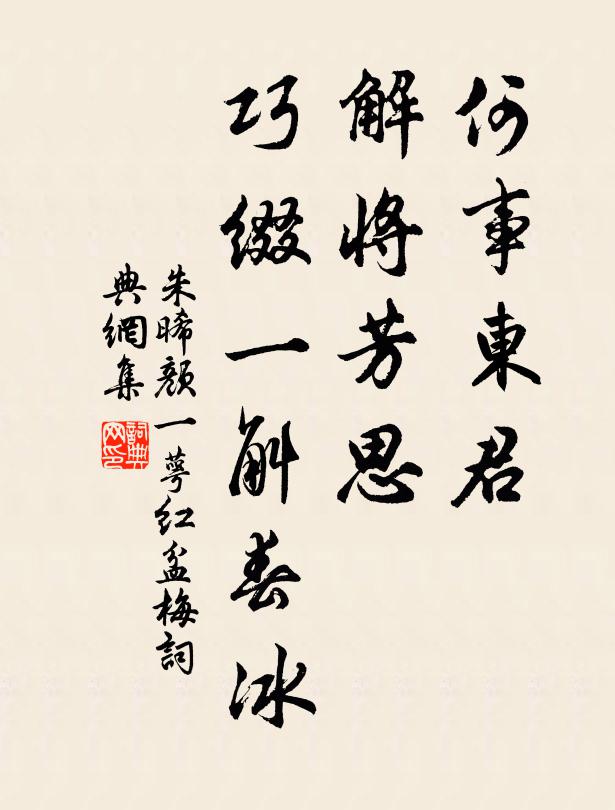 何事東君
解將芳思
巧綴一斛春冰
朱晞顏一萼紅盆梅詞
典網集
詞典
网印